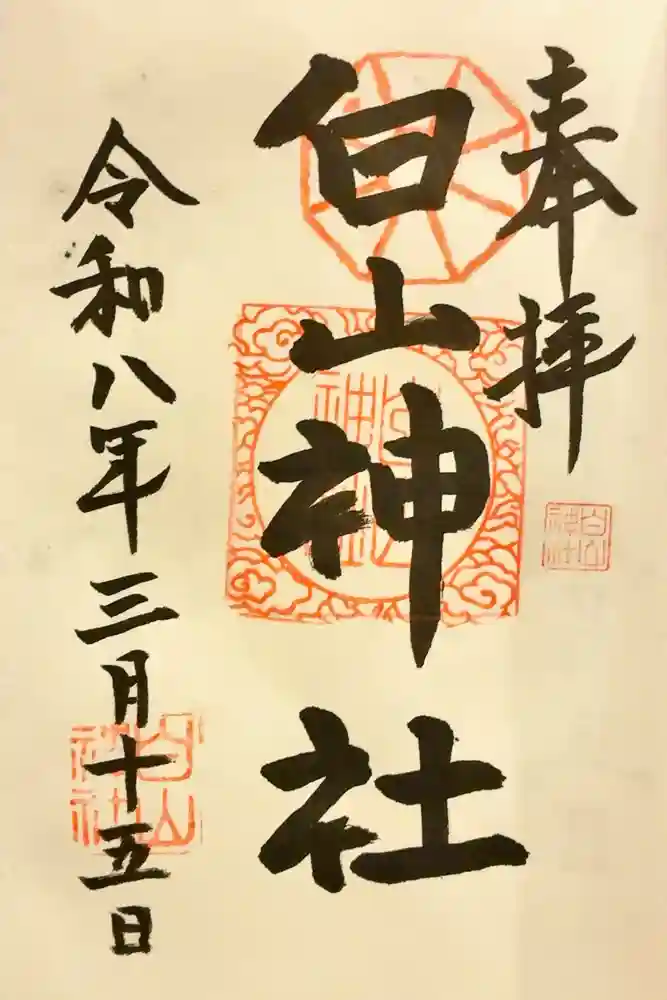 奉拝
白山神社
白山神社
白山神社
令和八年三月十五日
白山神社